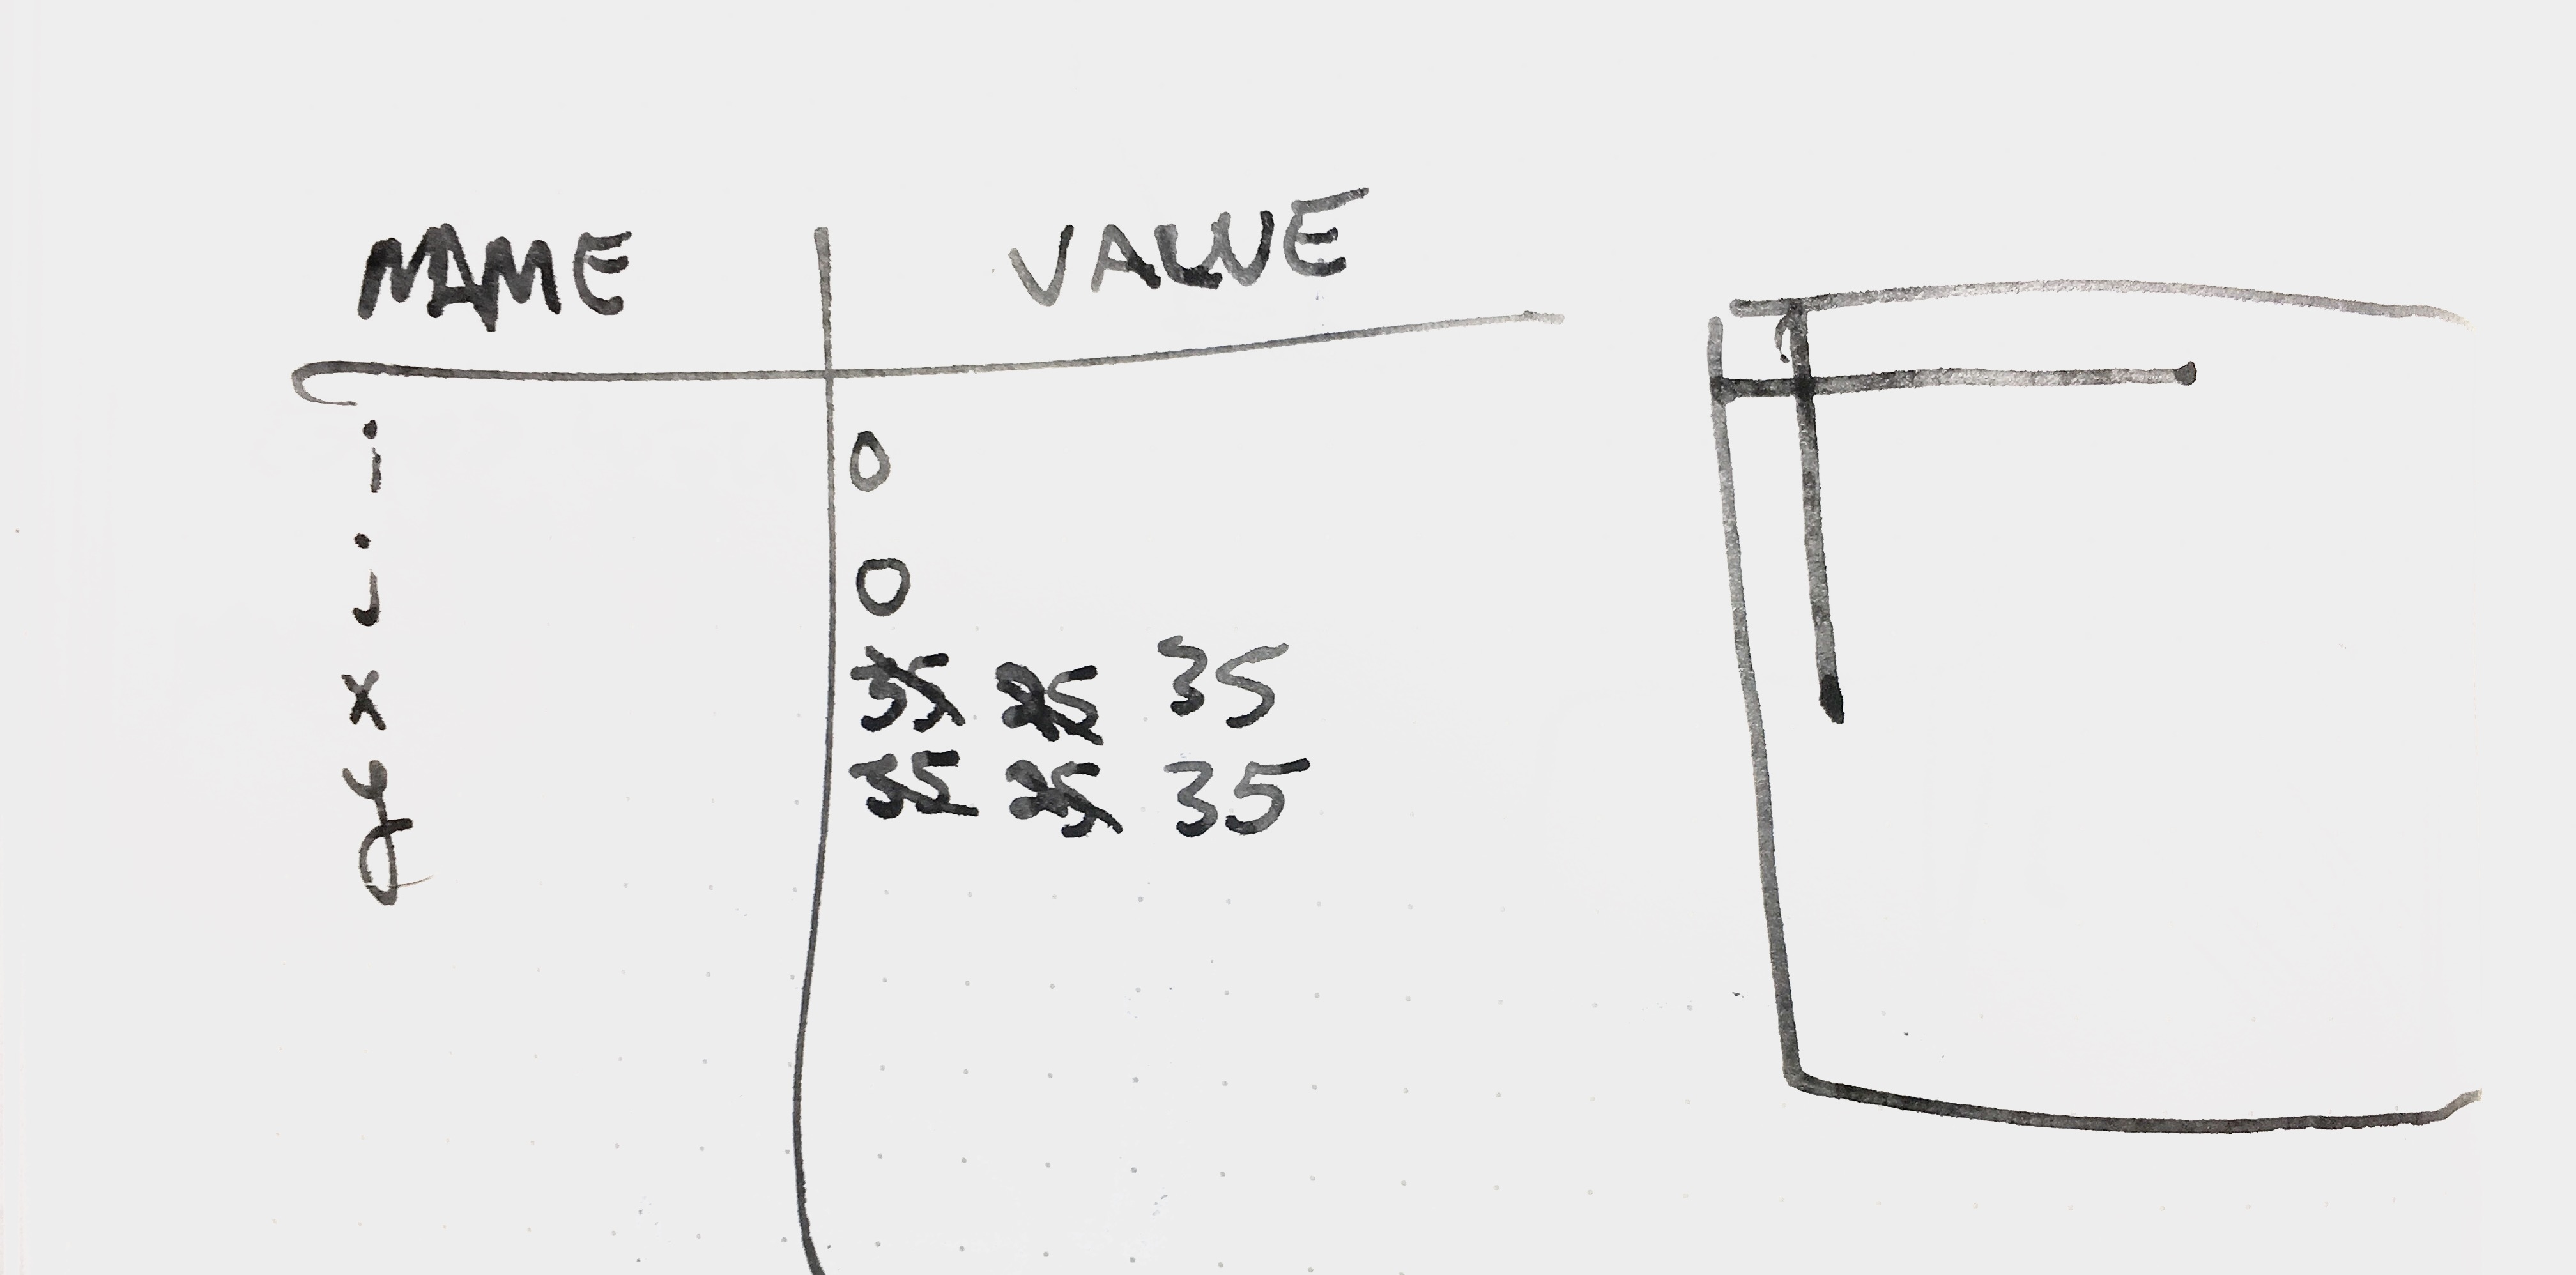 NAME VALUE
i 0
j 0
x 35 25 35
y 35 25 35